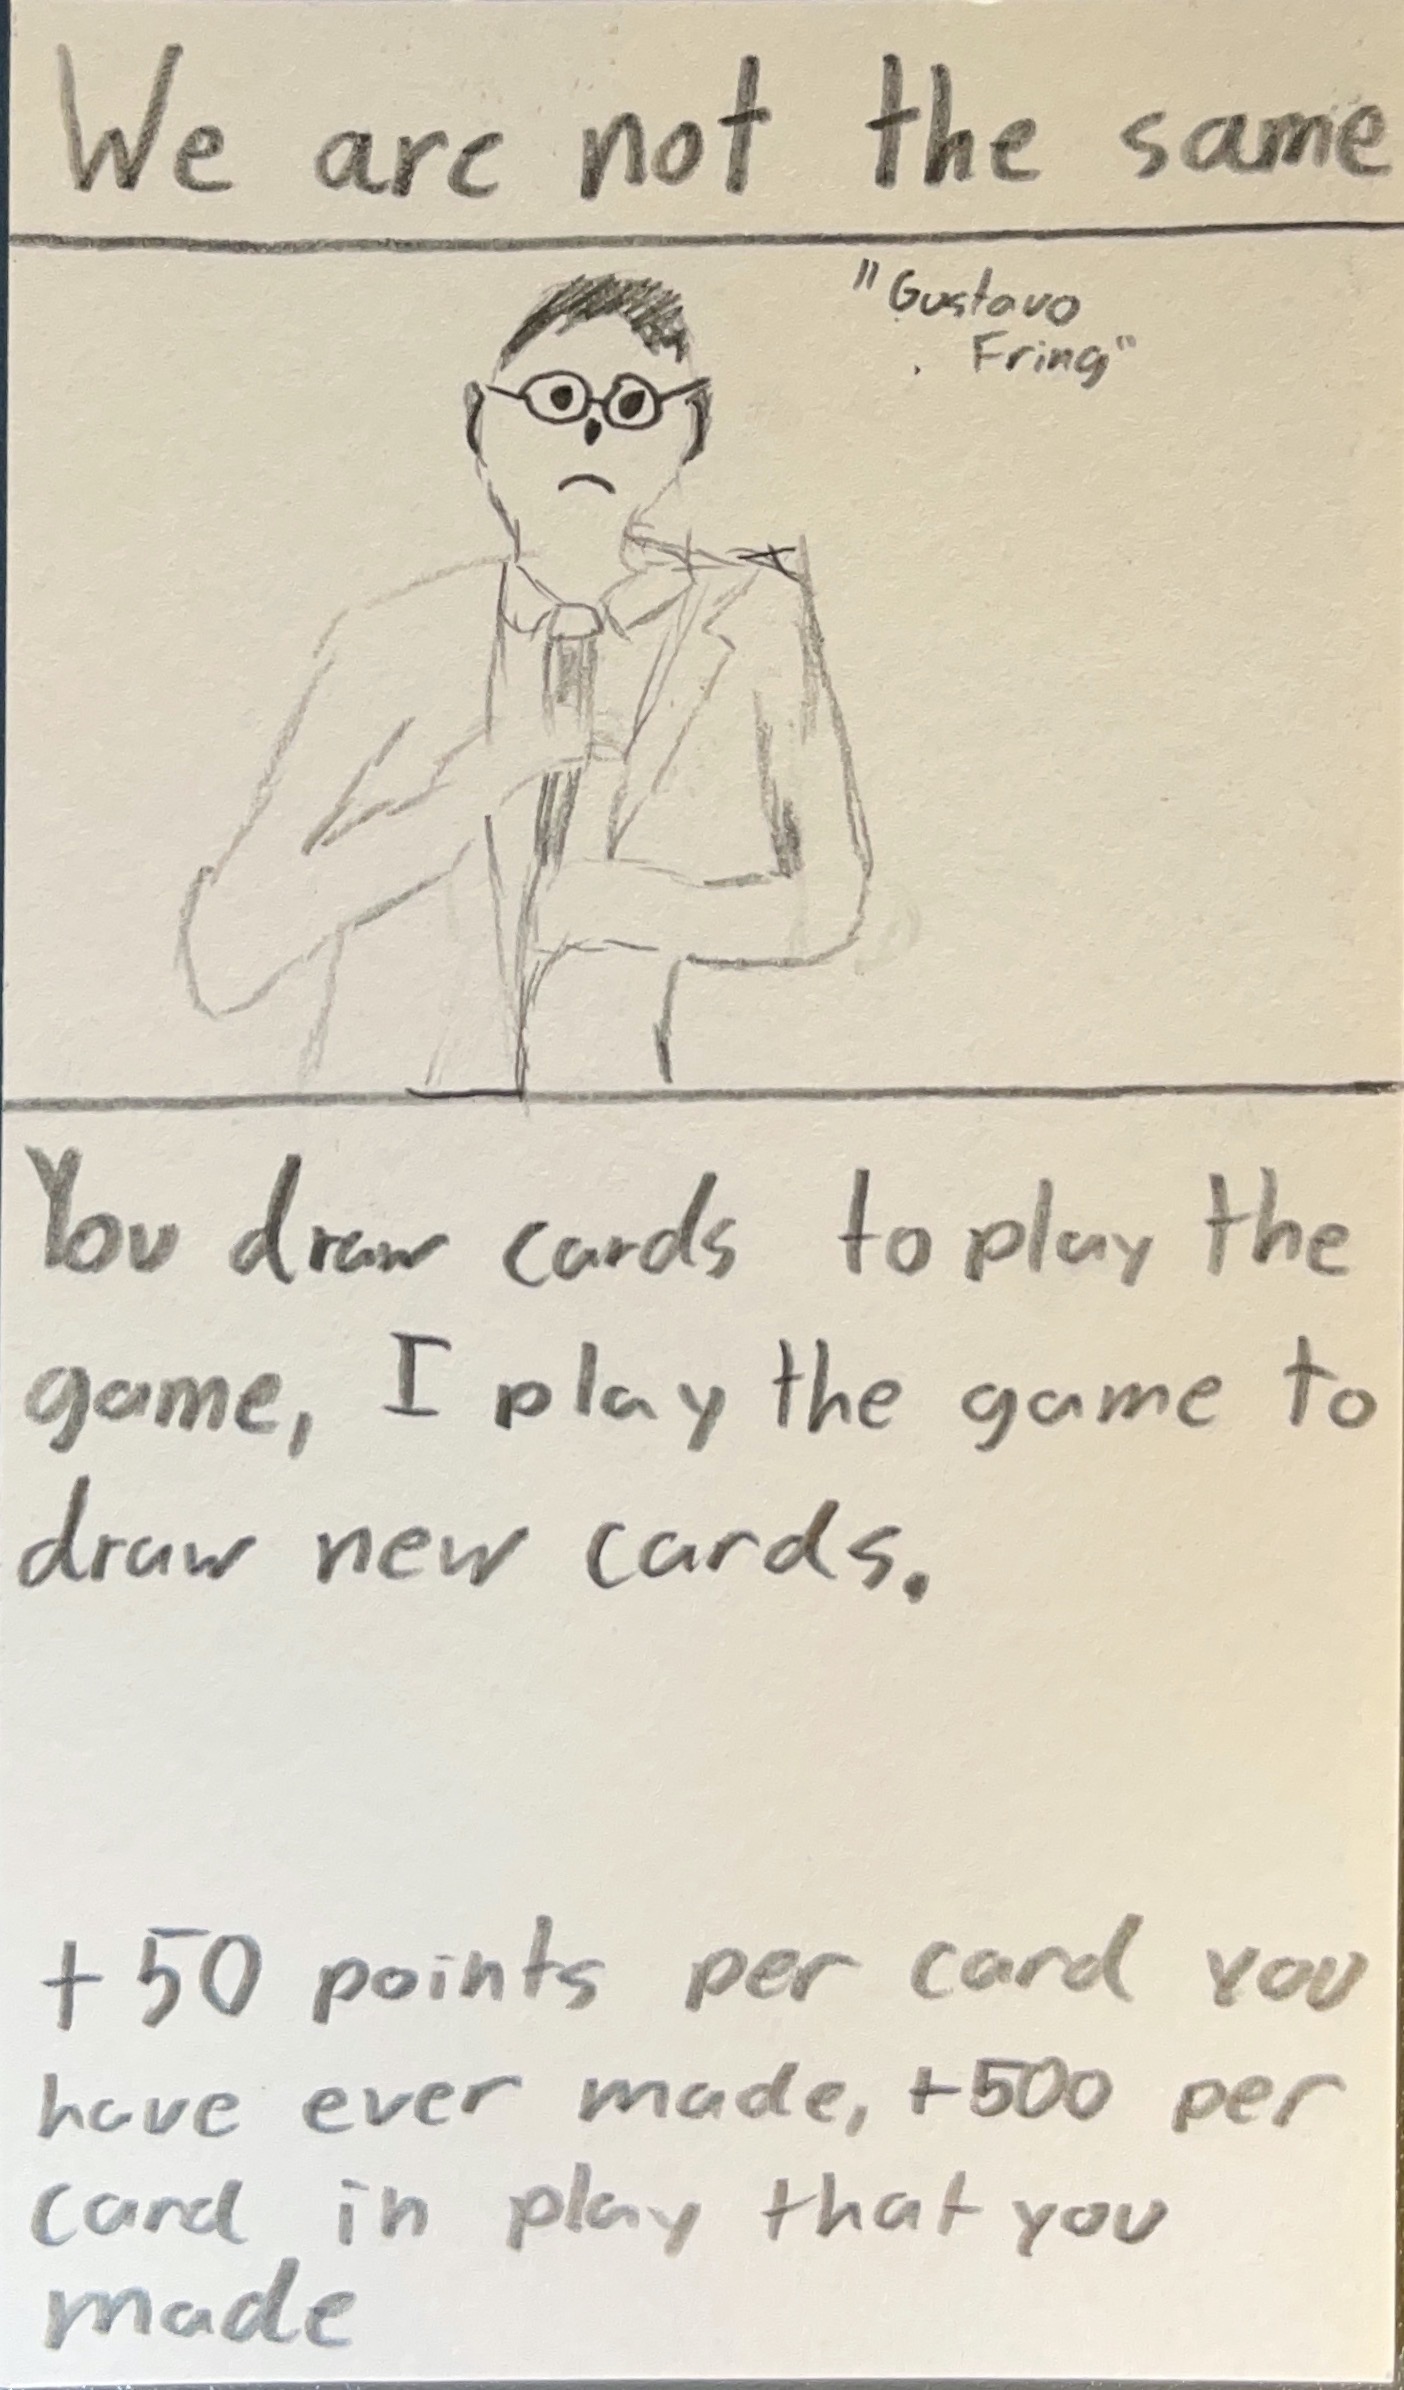 We are not the same
"Gustavo
Fring"
You draw cards to play the
game, I play the game to
draw new cards.
+50 points per card you
have ever made, +500 per
card in play that you
made